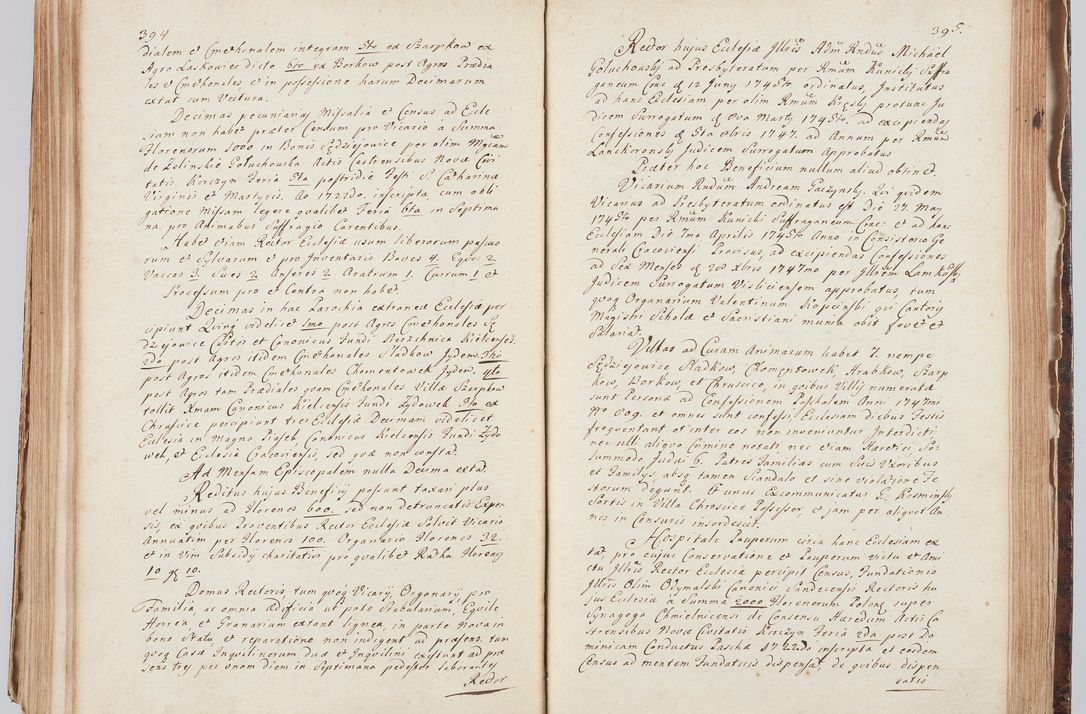 394
dialem et Cmethonalem integram 5to ex Szarpkow ex
Agro Laskowiec dicto 6to ex Borkow post Agros Prædia
les et Cmethonales et in possessione harum Decimarum
extat cum Vectura.
Decimas pecuniarias Missalia et Census ad Eccle
siam non habet præter Censum pro Vicario a Summa
Florenorum 1000 in Bonis Sędziejowice per olim
de Zelinskie Gołuchowska Actis Castrensibus Novæ Civi
tatis Korczyn Feria 5ta postridie Festi S. Catharinæ
Virginis et Martyris. Ao 1722do. inscripta, cum obli
gatione Missam legere qualibet Feria 6ta in Septima
na pro Animabus Suffragio Carentibus.
Habet etiam Rector Ecclesiæ usum liberorum pascuo
rum et Sylvarum et pro Inventario Boves 4. Equos 2
Vaccas 3. Sues 2 Anseres 2 Aratrum 1. Currum 1 et
Processum pro et Contra non habet
Decimas in hac Parochia extraneæ Ecclesiæ per
cipiunt videlicet 1mo post Agros Cmethonales Sę
dziejowice Custos et Canonicus Fundi Kielcensis.
2do post Agros itidem Cmethonales Sladkow Jydem. 3tio
post Agros itidem Cmethonales Chomentowek Jydem. 4to
post Agros tam Prædiales quam Cmethonales Villæ Szarpkow
tollit Xmam Canonicus Kielcensis Fundi Zydowek 5to ex
Chrusice percipiunt tres Ecclesiæ Decimam videlicet
Ecclesia in Magno Piasek Canonicus Kielcensis Fundi Zydo
wek, et Ecclesia Cracoviensis, sed quæ non constat.
Ad Mensam Episcopalem nulla Decima extat.
Reditus hujus Beneficij possunt taxari plus
vel minus ad Florenos 600. sed non detruncatis Expen
sis, ex quibus Proventibus Rector Ecclesiæ Solvit Vicario
Annuatim per Florenos 100. Organario Florenos 32.
et in Vim Subsidij charitativi pro qualibet Ratha Florenos
10 gr 10.
Domus Rectoris, tum quoq Vicarij, Organarij, pro
Familia, ac omnia Ædificia ut pote Stabulanium, Equile
Horrea, et Granarium extant lignea, in parte Nova in
bono Statu et reparatione non indigent ad præsens. tum
quoq Casæ Inquilinorum duæ et Inquilini existunt ad præ
sens trey per unam diem in Septimana pedester laborantes
Rector
395.
Rector hujus Ecclesiæ Jllris Adm Rndus Michaël
Gołuchowsky ad Presbyteratum per Rmum Kunicky Suffra
ganeum Crac: d 12 Juny 1745to ordinatus, Institutus
ad hanc Ecclesiam per olim Rmum protunc Ju
dicem Surrogatum d 8va Marty 1745to. ad excipiendas
Confessiones d 5ta 8bris 1747. ad Annum per Rmum
Lanckoronsky Judicem Surrogatum Approbatus
Præter hoc Beneficium nullum aliud obtinet.
Vicarium Rndum Andream Gaczynsky. Qui quidem
Vicarius ad Presbyteratum ordinatus est Die 27. May
1745to per Rmum Kunicki Suffraganeum Crac: et ad hanc
Ecclesiam Die 7ma Aprilis 1745to Anno in Consistorio Ge
nerali Cracoviensi Provisus, ad excipiendas Confessiones
ad Sex Menses d 28 Xbris 1747mo per Jllrem
Judicem Surrogatum Visliciensem approbatus, tum
quoq Organarium Valentinum Kopcinski, qui Cantory
Magistri Scholæ et Sacristiani munia obit
Salariat.
Villas ad Curam Animarum habet 7. nempe
Sędziejowice Sladkow, Chomentowek, Grabkow, Szarp
kow, Borkow, et Chruscice, in quibus Villis numeratæ
sunt Personæ ad Confessionem Paschalem Anni 1747mi
Nro 809. et omnes sunt confessi Ecclesiam diebus Festis
frequentant et inter eos non inveniuntur Interdicti,
nec ulli aliquo Crimine notati, nec etiam Hæretici, So
lummodo Judæi 6. Patres Familias cum Suis Uxoribus
et Familys, absq tamen Scandalo et sine violatione Fe
storum degunt. Et unus Excommunicatus G. Kosminsky
Sortis in Villa Chroscice Possessor, et jam per aliquot An
nos in Censuris insordescit.
Hospitale Pauperum circa hanc Ecclesiam ex
tat, pro cujus Conservatione et Pauperum victu et Ami
ctu Jllris Rector Ecclesiæ percipit Census, Fundationis
Jllris Olim Odymalski Canonici Sandecensis Rectoris hu
jus Ecclesiæ a Summa 2000 Florenorum Polon: super
Synagoga Chmielnicensi de Consensu Hæredum Actis Ca
strensibus Novæ Civitatis Korczyn Feria 2da post Do
minicam Conductus Paschæ 1722do inscripta et eosdem
Census ad mentem Fundatoris dispensat de quibus dispen
satio